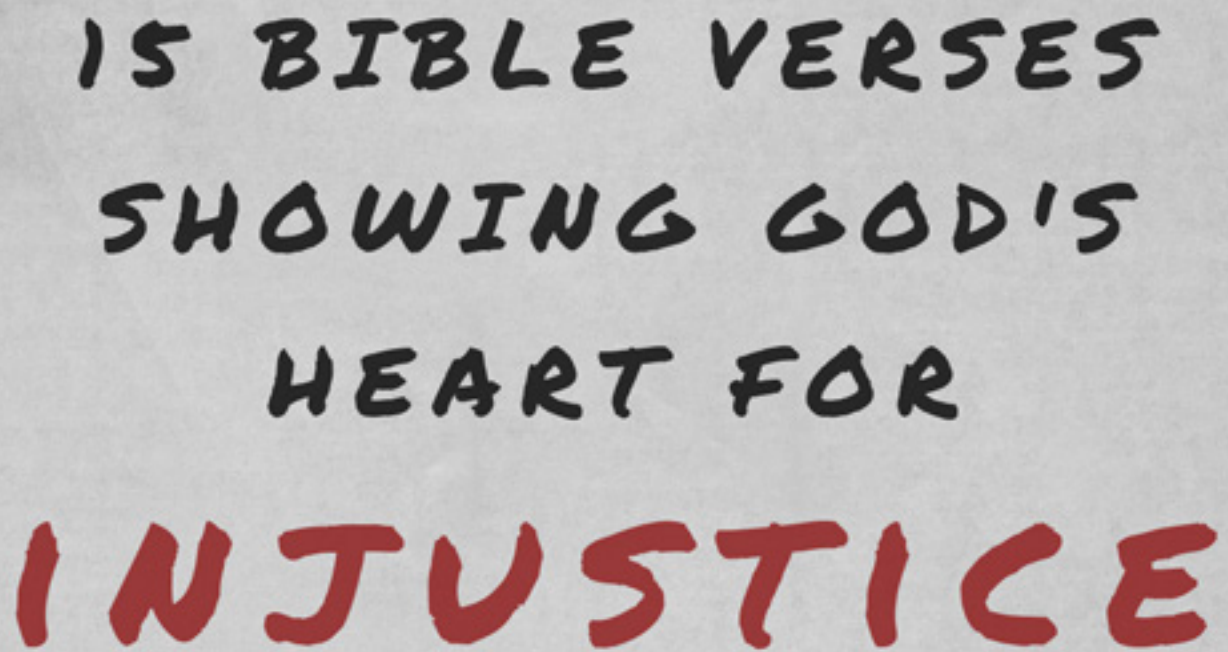 15 BIBLE VERSES
SHOWING GOD'S
HEART FOR
INJUSTICE